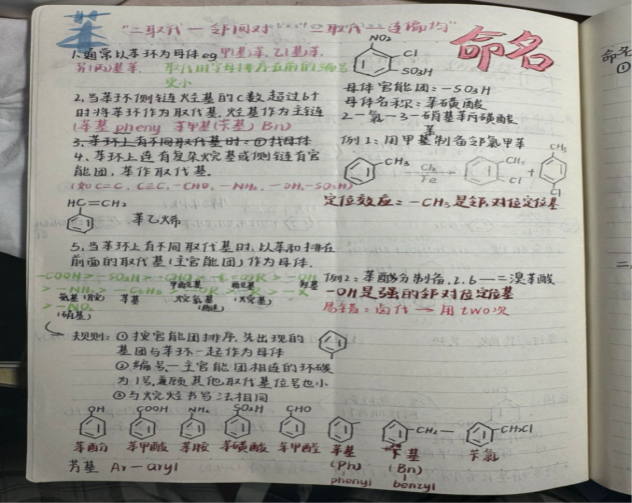 苯
"二取代—邻间对"
命名
1.通常以苯环为母体 eg 甲(基)苯, 乙(基)苯,
异(丙)基苯. 取代用字母排序在前的编号
更小
2.当苯环侧链烃基的C数超过6个
时将苯环作为取代基,烃基作为主链
(苯基 pheny 苯甲基(苄基) Bn)
3.苯环上有不同取代基时:①找母体
4.苯环上连有复杂烷基或侧链有官
能团,苯作取代基.
(如C=C, C≡C, -CHO, -NH₂, -OH, -SO₃H)
HC=CH₂
苯乙烯
5.当苯环上有不同取代基时,以苯和排在
前面的取代基(主官能团)作为母体.
-COOH > -SO₃H >
> -NH₂ >
氨基(胺) 苯基
> -NO₂
(硝基)
规则: ①按官能团排序,先出现的
基团与苯环一起作为母体
②编号—主官能团相连的环碳
为1号,兼顾其他取代基位号也小
③与烷烃书写法相同
OH COOH NH₂ SO₃H CHO
苯酚 苯甲酸 苯胺 苯磺酸 苯甲醛
芳基 Ar-aryl
NO₂
Cl
SO₃H
母体官能团=-SO₃H
母体名称: 苯磺酸
2-氯-3-硝基苯磺酸
例1:用甲基制备邻氯甲苯
CH₃ Cl₂ Fe CH₃ Cl + CH₃ Cl
定位效应=-CH₃是邻对位定位基
例2:苯酚分制备2,6-二溴苯酚
-OH是强的邻对位定位基
易错:卤代→用two次
CH₂- CH₂Cl
苯基 苄基 苄氯
(Ph) (Bn)
phenyl benzyl